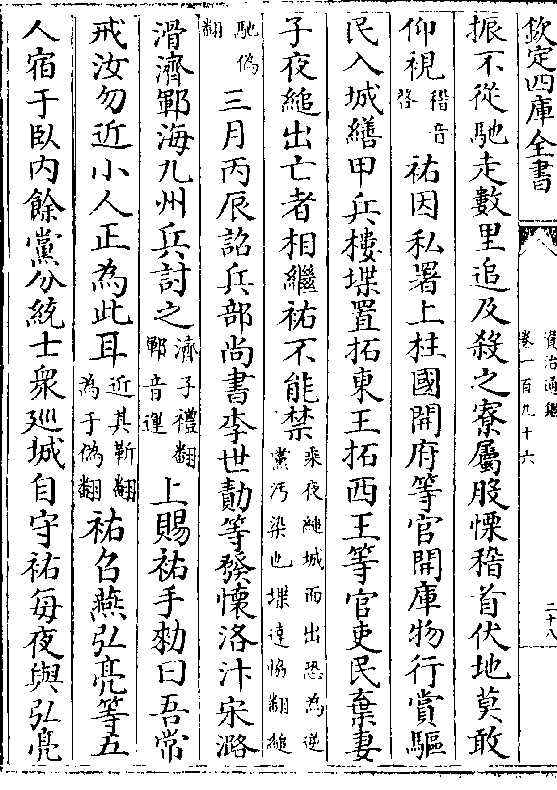 欽定四庫全書
資治通鑑
卷一百九十六
二十八
振不從馳走數里追及殺之寮屬股慄稽首伏地莫敢
仰視稽音啓祐因私署上柱國開府等官開庫物行賞驅
民入城繕甲兵樓堞置拓東王拓西王等官吏民棄妻
子夜縋出亡者相繼祐不能禁乘夜縋城而出恐為逆黨汚染也堞達協翻縋
馳偽翻三月丙辰詔兵部尚書李世勣等發懷洛汴宋潞
滑濟鄆海九州兵討之濟子禮翻鄆音運上賜祐手勑曰吾常
戒汝勿近小人正為此耳近其靳翻為于偽翻祐召燕弘亮等五
人宿于臥内餘黨分統士衆廵城自守祐每夜與弘亮